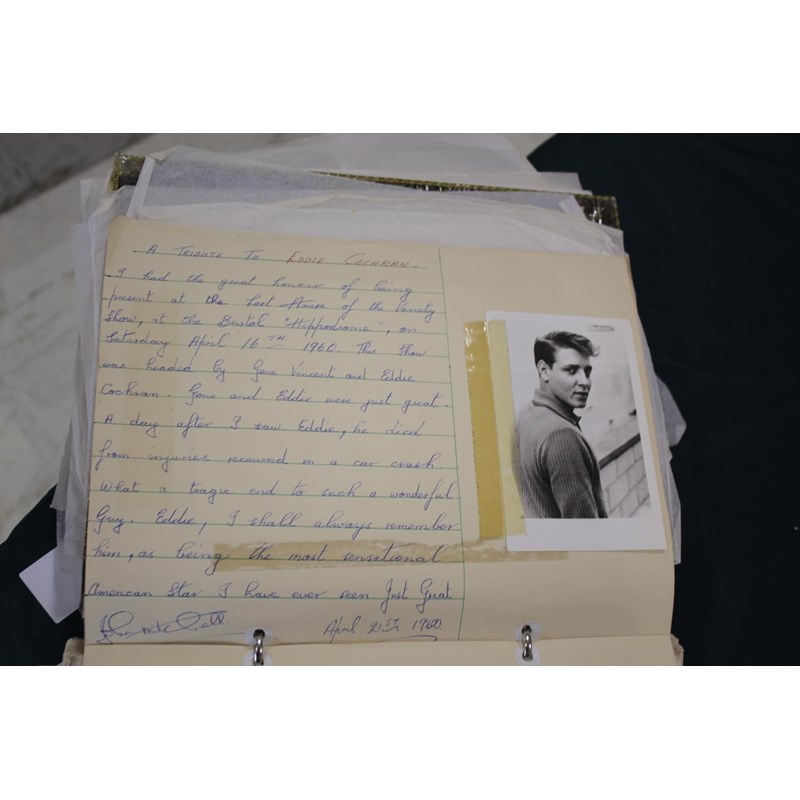 A TRIBUTE TO EDDIE COCHRAN.
I had the great honour of being
present at the last House of the Variety
Show, at the Bristol "Hippodrome", on
Saturday April 16TH 1960. This Show
was headed by Gene Vincent and Eddie
Cochran. Gene and Eddie were just great.
A day after I saw Eddie, he died
from injuries received in a car crash.
What a tragic end to such a wonderful
Guy. Eddie, I shall always remember
him, as being the most sensational
American Star I have ever seen. Just Great.
April 21ST 1960